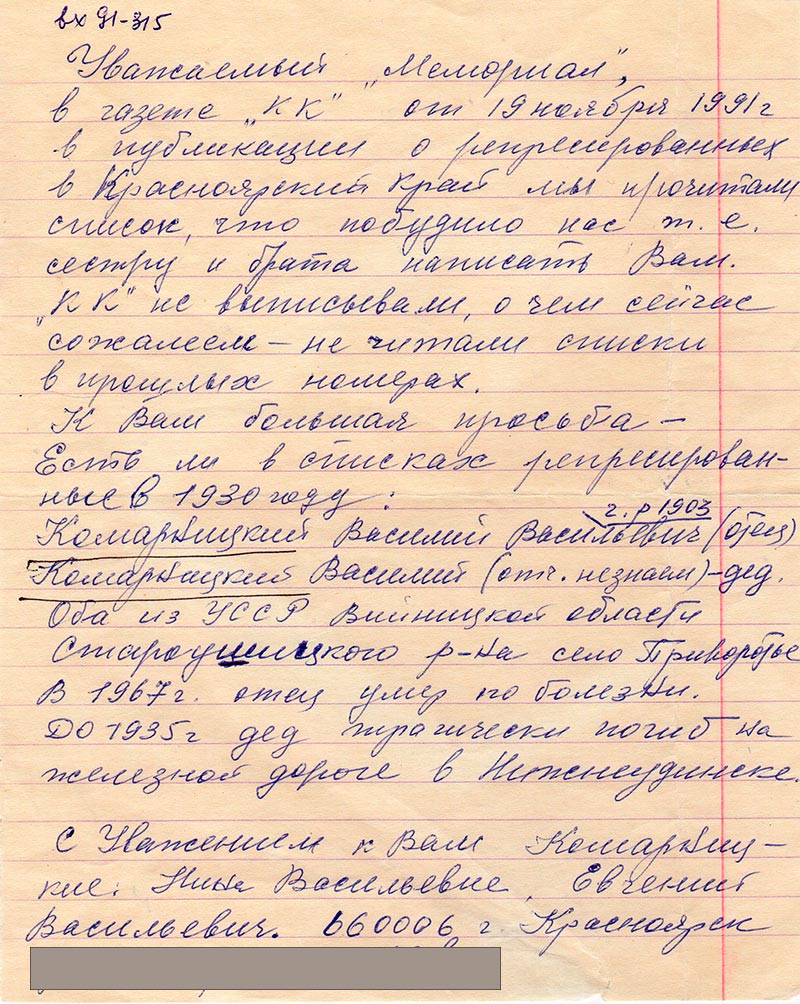 вх 91-315
Уважаемый „Мемориал",
в газете „КК" от 19 ноября 1991г
в публикации о репресированных
в Красноярский край мы прочитали
список, что побудило нас т.е.
сестру и брата написать Вам.
„КК" не выписывали, о чем сейчас
сожалеем – не читали списки
в прошлых номерах.
К Вам большая просьба –
Есть ли в списках репресирован-
ные в 1930 году :
г. р 1903
Комарницкий Василий Васильевич (отец)
Комарницкий Василий (отч. незнаем) – дед.
Оба из УССР Винницкой области
Староушицкого р-на село Привороттье
В 1967г. отец умер по болезни.
До 1935г дед трагически погиб на
железной дороге в Нижнеудинске.
С Уважением к Вам Комарниц-
кие: Нина Васильевне, Евгений
Васильевич. 660006 г. Красноярск